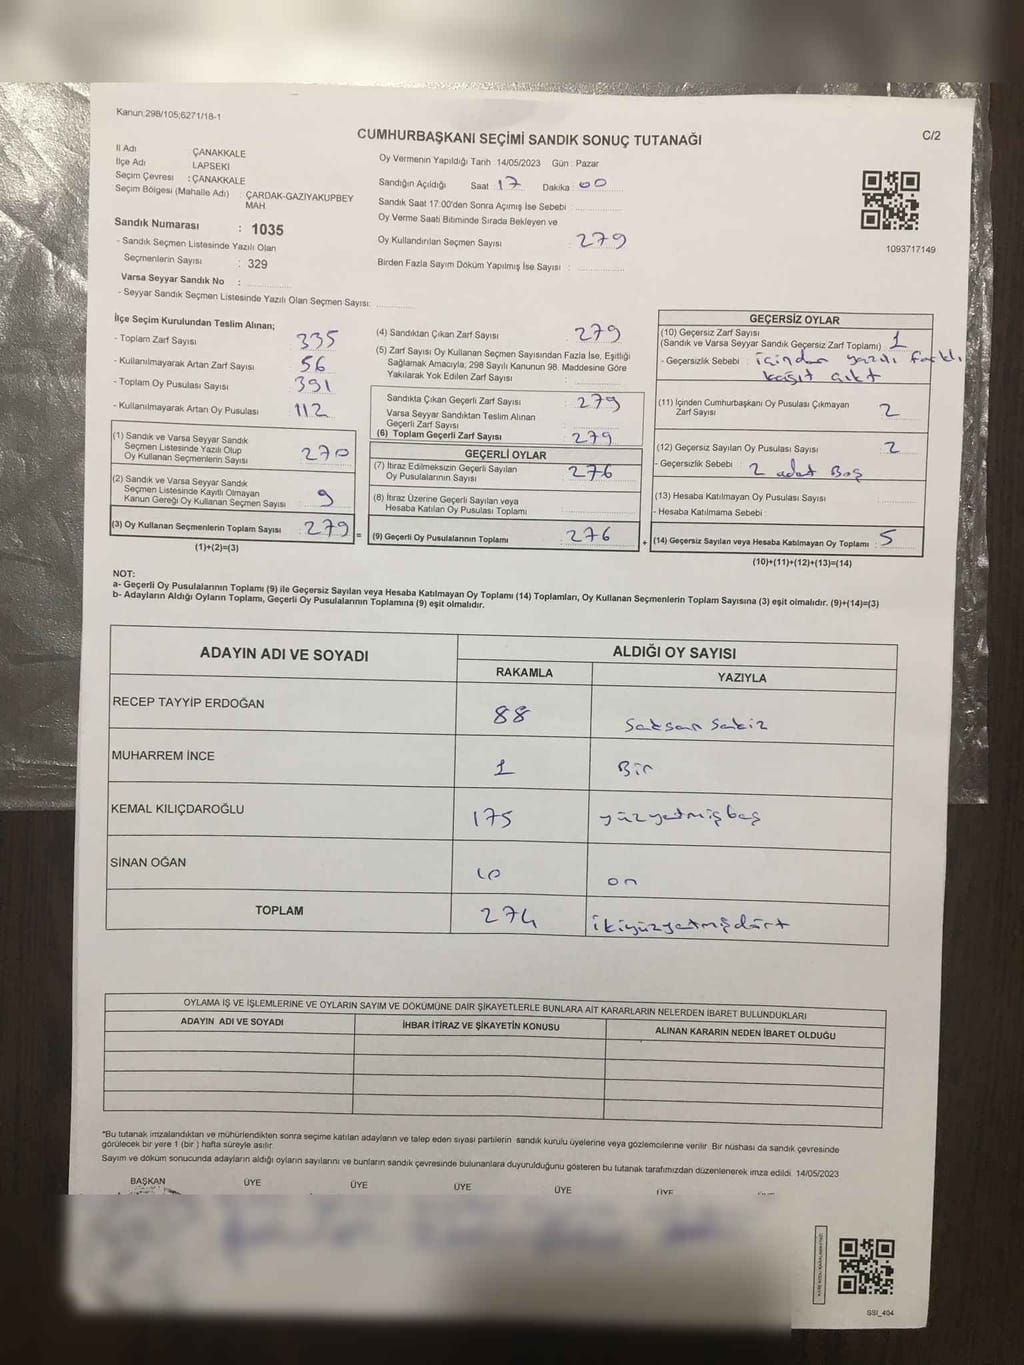 Kanun;298/105;6271/18-1
CUMHURBAŞKANI SEÇİMİ SANDIK SONUÇ TUTANAĞI
C/2
İl Adı ÇANAKKALE
İlçe Adı LAPSEKİ
Seçim Çevresi : ÇANAKKALE
Seçim Bölgesi (Mahalle Adı) : ÇARDAK-GAZİYAKUPBEY
MAH.
Sandık Numarası : 1035
- Sandık Seçmen Listesinde Yazılı Olan
Seçmenlerin Sayısı : 329
Varsa Seyyar Sandık No :
- Seyyar Sandık Seçmen Listesinde Yazılı Olan Seçmen Sayısı:
Oy Vermenin Yapıldığı Tarih 14/05/2023 Gün : Pazar
Sandığın Açıldığı Saat 17 Dakika : 00
Sandık Saat 17.00'den Sonra Açımış İse Sebebi :
Oy Verme Saati Bitiminde Sırada Bekleyen ve
Oy Kullandırılan Seçmen Sayısı : 279
Birden Fazla Sayım Döküm Yapılmış İse Sayısı :
1093717149
İlçe Seçim Kurulundan Teslim Alınan;
- Toplam Zarf Sayısı : 335
- Kullanılmayarak Artan Zarf Sayısı : 56
- Toplam Oy Pusulası Sayısı : 391
- Kullanılmayarak Artan Oy Pusulası : 112
(1) Sandık ve Varsa Seyyar Sandık
Seçmen Listesinde Yazılı Olup
Oy Kullanan Seçmenlerin Sayısı : 270
(2) Sandık ve Varsa Seyyar Sandık
Seçmen Listesinde Kayıtlı Olmayan
Kanun Gereği Oy Kullanan Seçmen Sayısı : 9
(3) Oy Kullanan Seçmenlerin Toplam Sayısı : 279 =
(1)+(2)=(3)
(4) Sandıktan Çıkan Zarf Sayısı : 279
(5) Zarf Sayısı Oy Kullanan Seçmen Sayısından Fazla İse, Eşitliği
Sağlamak Amacıyla, 298 Sayılı Kanunun 98. Maddesine Göre
Yakılarak Yok Edilen Zarf Sayısı :
Sandıkta Çıkan Geçerli Zarf Sayısı : 279
Varsa Seyyar Sandıktan Teslim Alınan
Geçerli Zarf Sayısı :
(6) Toplam Geçerli Zarf Sayısı : 279
GEÇERLİ OYLAR
(7) İtiraz Edilmeksizin Geçerli Sayılan
Oy Pusulalarının Sayısı : 276
(8) İtiraz Üzerine Geçerli Sayılan veya
Hesaba Katılan Oy Pusulası Toplamı :
(9) Geçerli Oy Pusulalarının Toplamı : 276 +
GEÇERSİZ OYLAR
(10) Geçersiz Zarf Sayısı
(Sandık ve Varsa Seyyar Sandık Geçersiz Zarf Toplamı) : 1
- Geçersizlik Sebebi : içinden yazılı farklı
kağıt çıktı
(11) İçinden Cumhurbaşkanı Oy Pusulası Çıkmayan
Zarf Sayısı : 2
(12) Geçersiz Sayılan Oy Pusulası Sayısı : 2
- Geçersizlik Sebebi : 2 adet Boş
(13) Hesaba Katılmayan Oy Pusulası Sayısı :
- Hesaba Katılmama Sebebi :
(14) Geçersiz Sayılan veya Hesaba Katılmayan Oy Toplamı : 5
(10)+(11)+(12)+(13)=(14)
NOT:
a- Geçerli Oy Pusulalarının Toplamı (9) ile Geçersiz Sayılan veya Hesaba Katılmayan Oy Toplamı (14) Toplamları, Oy Kullanan Seçmenlerin Toplam Sayısına (3) eşit olmalıdır. (9)+(14)=(3)
b- Adayların Aldığı Oyların Toplamı, Geçerli Oy Pusulalarının Toplamına (9) eşit olmalıdır.
ADAYIN ADI VE SOYADI ALDIĞI OY SAYISI
RAKAMLA YAZIYLA
RECEP TAYYİP ERDOĞAN 88 Seksen Sekiz
MUHARREM İNCE 1 Bir
KEMAL KILIÇDAROĞLU 175 yüzyetmişbeş
SİNAN OĞAN 10 on
TOPLAM 274 ikiyüzyetmişdört
OYLAMA İŞ VE İŞLEMLERİNE VE OYLARIN SAYIM VE DÖKÜMÜNE DAİR ŞİKAYETLERLE BUNLARA AİT KARARLARIN NELERDEN İBARET BULUNDUKLARI
ADAYIN ADI VE SOYADI İHBAR İTİRAZ VE ŞİKAYETİN KONUSU ALINAN KARARIN NEDEN İBARET OLDUĞU
*Bu tutanak imzalandıktan ve mühürlendikten sonra seçime katılan adayların ve talep eden siyasi partilerin sandık kurulu üyelerine veya gözlemcilerine verilir. Bir nüshası da sandık çevresinde
görülecek bir yere 1 (bir ) hafta süreyle asılır.
Sayım ve döküm sonucunda adayların aldığı oyların sayılarını ve bunların sandık çevresinde bulunanlara duyurulduğunu gösteren bu tutanak tarafımızdan düzenlenerek imza edildi. 14/05/2023
BAŞKAN ÜYE ÜYE ÜYE ÜYE ÜYE
SSI_404